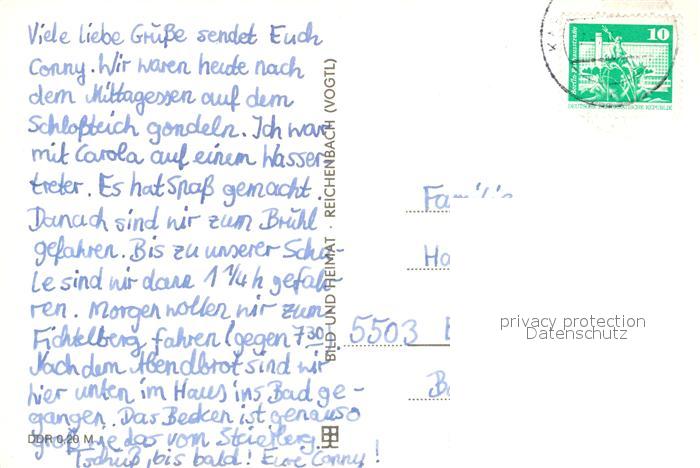 Viele liebe Grüße sendet Euch
Conny. Wir waren heute nach
dem Mittagessen auf dem
Schloßteich gondeln. Ich war
mit Carola auf einem Wasser-
treter. Es hat Spaß gemacht.
Danach sind wir zum Brühl
gefahren. Bis zu unserer Schu-
le sind wir dann 1 1/4 h gefah-
ren. Morgen wollen wir zum
Fichtelberg fahren (gegen 7.30
Nach dem Abendbrot sind wir
hier unten im Haus ins Bad ge-
gangen. Das Becken ist genauso
groß wie das vom
Tschüß, bis bald! Eure Conny!
DDR 0,20 M
BILD UND HEIMAT · REICHENBACH (VOGTL)
10
DEUTSCHE DEMOKRATISCHE REPUBLIK
KA
Familie
Ha
5503
privacy protection
Datenschutz